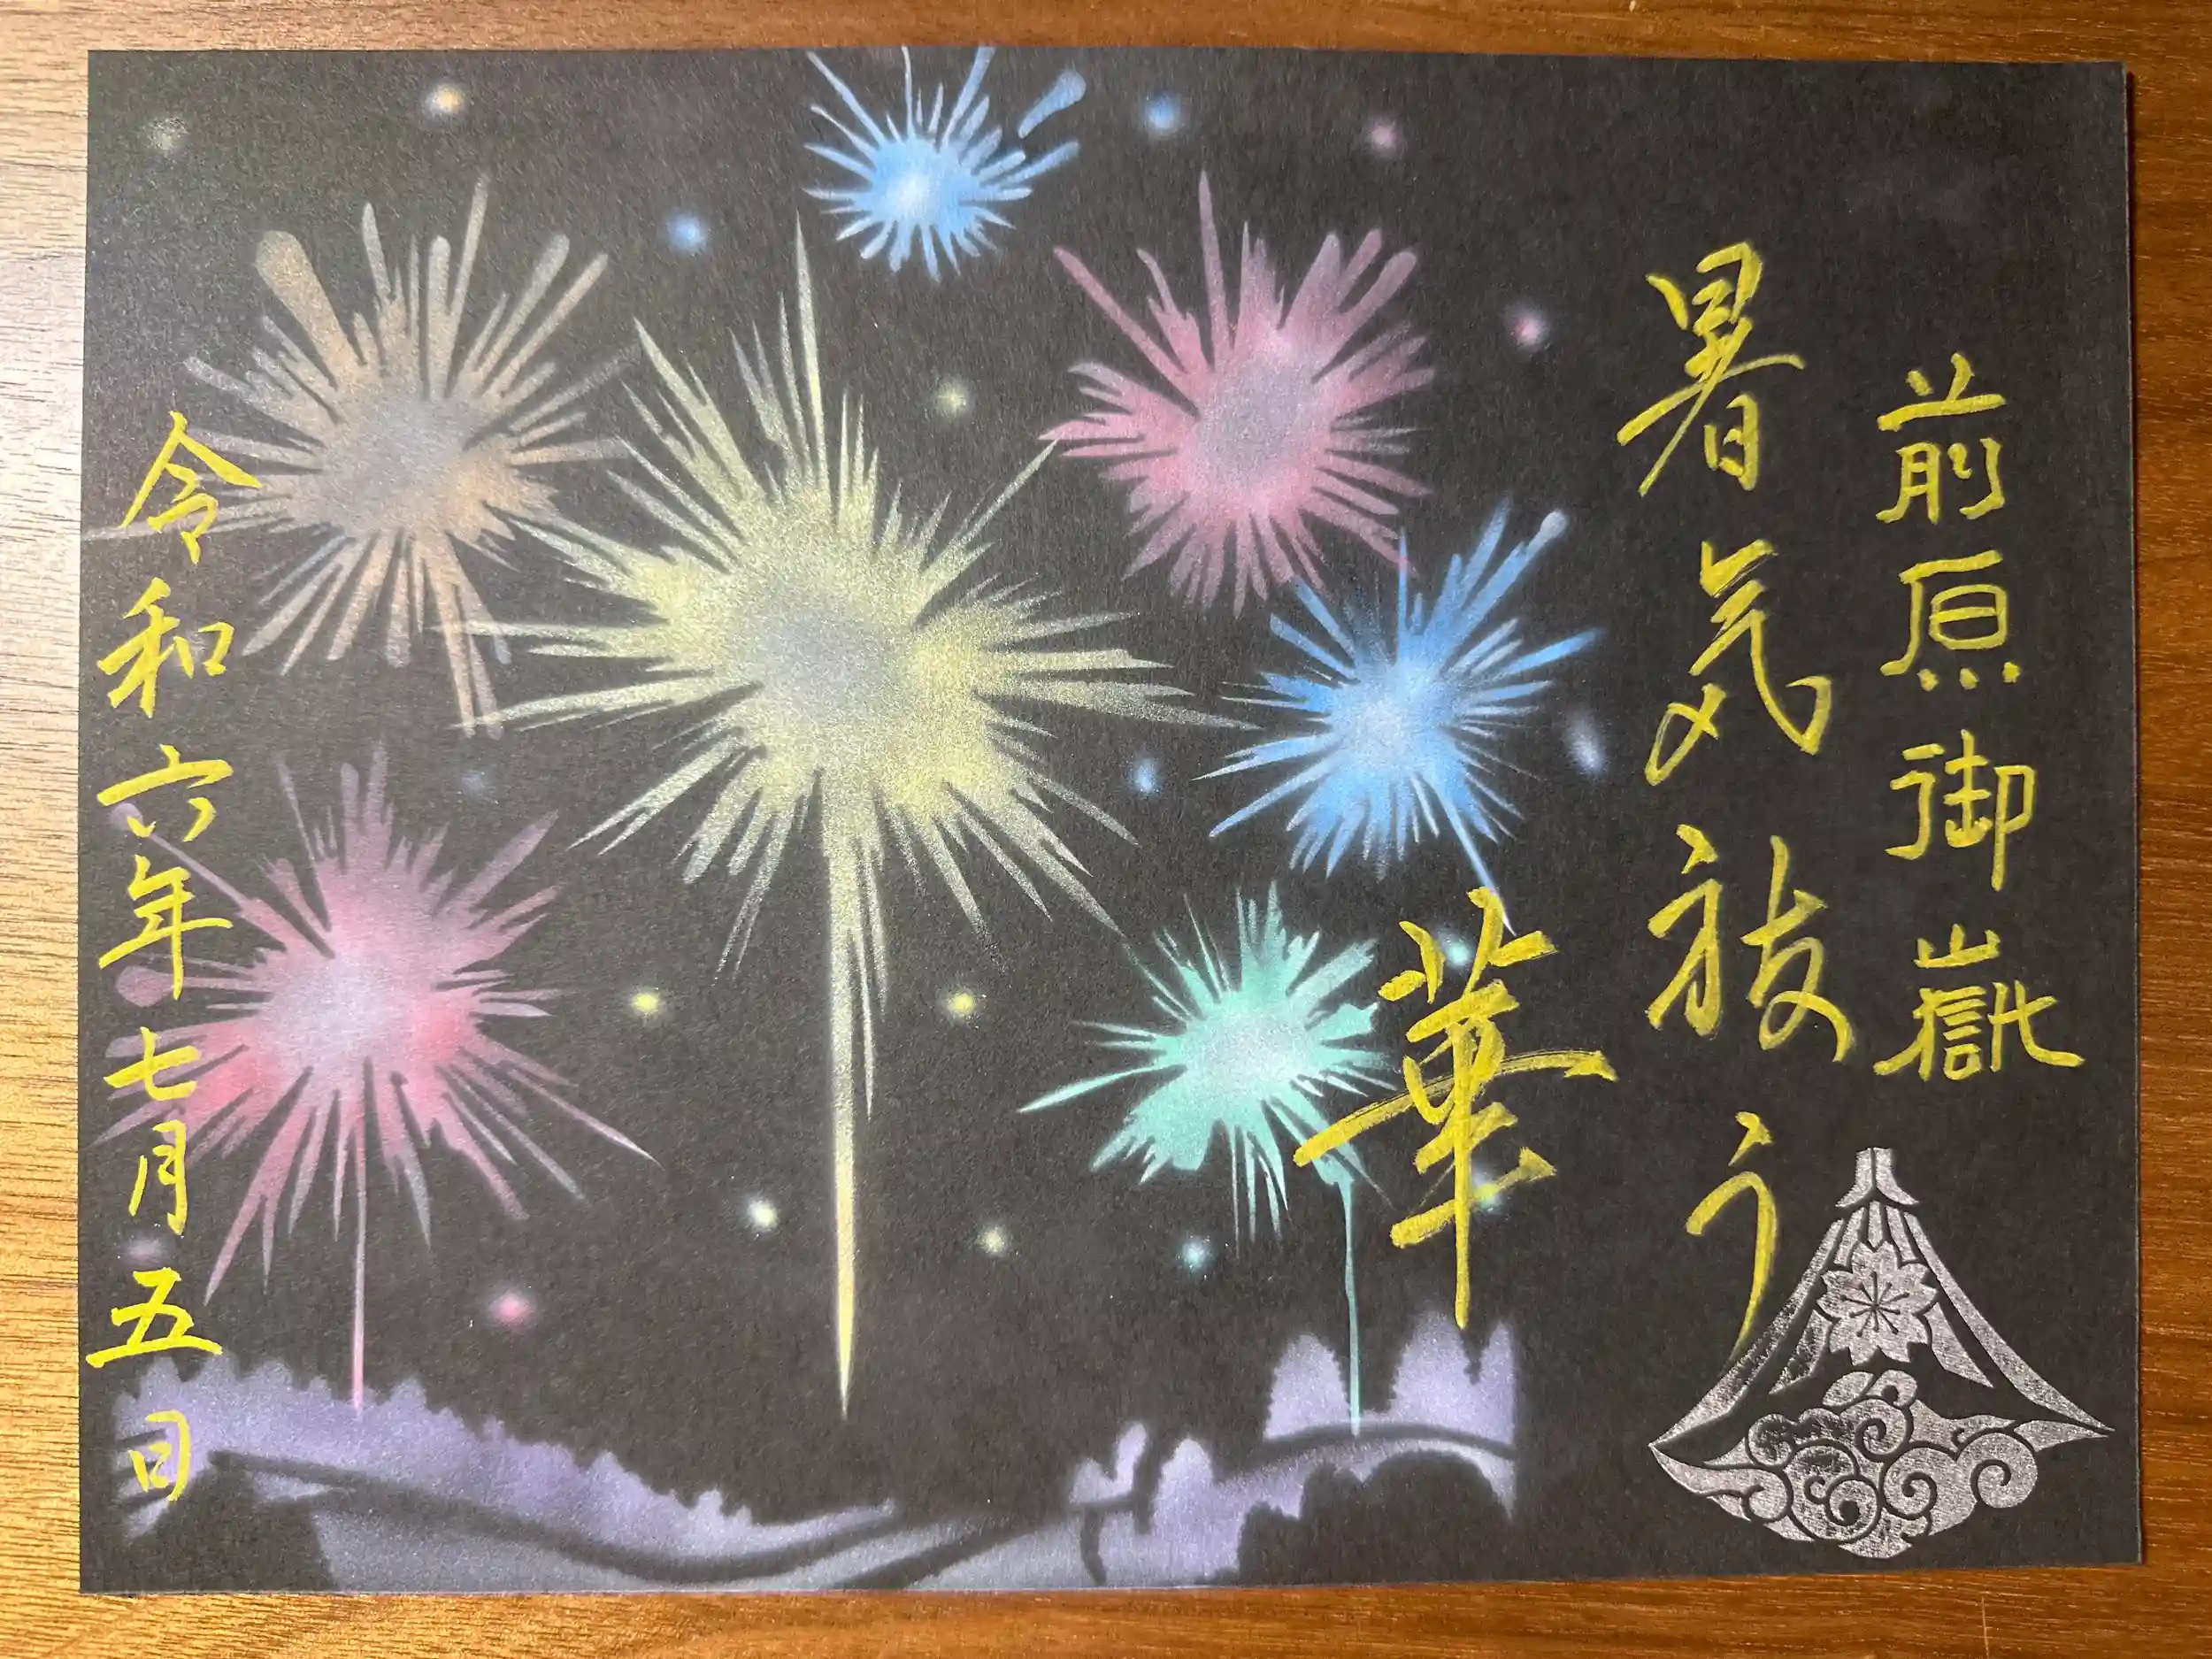 前原御嶽
暑気祓う
華
令和六年七月五日